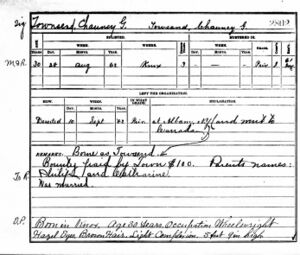 Townsend, Chauncy G. Townsend, Chauncy S.
ENLISTED MUSTERED IN
WHEN. WHERE. WHEN. WHERE.
DAY MONTH YEAR
M&R 30 28 Aug 62 Knox 3 — — Priv. 3
LEFT THE ORGANIZATION.
HOW. WHEN. EXPLANATION.
DAY MONTH YEAR
Deserted 10 Sept 62 Priv. at Albany, N.Y. (and went to
Canada)
REMARKS: Borne as Townsend
Bounty paid by Town $100. Parents names:
Philip and Catharine.
Was Married.
D.P. Born in Knox. Age 30 Years, Occupation Wheelwright
Hazel Eyes Brown Hair, Light Complexion, 5 feet 9 in high